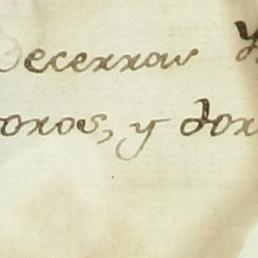 Becerras y
oros, y dor